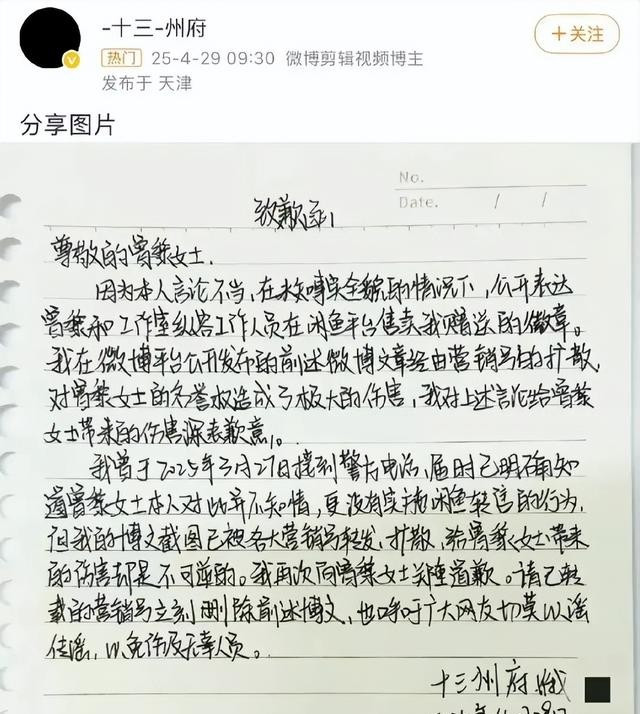 -十三-州府
热门 25-4-29 09:30 微博剪辑视频博主
发布于 天津
+关注
分享图片
No.
Date. / /
致歉函
尊敬的曾黎女士.
因为本人言论不当,在未核实全貌的情况下,公开表达
曾黎和工作室纵容工作人员在闲鱼平台售卖我赠送的徽章。
我在微博平台公开发布的前述微博文章经由营销号的扩散,
对曾黎女士的名誉权造成了极大的伤害,我对上述言论给曾黎
女士带来的伤害深表歉意。
我曾于2025年3月27日接到警方电话,届时已明确知
道曾黎女士本人对此并不知情,更没有实施闲鱼转售的行为,
但我的博文截图已被各大营销号转发、扩散,给曾黎女士带来
的伤害却是不可逆的。我再次向曾黎女士关注道歉。请已转
载的营销号立刻删除前述博文,也呼吁广大网友切莫以谣
传谣,以免伤及无辜人员。
十三州府